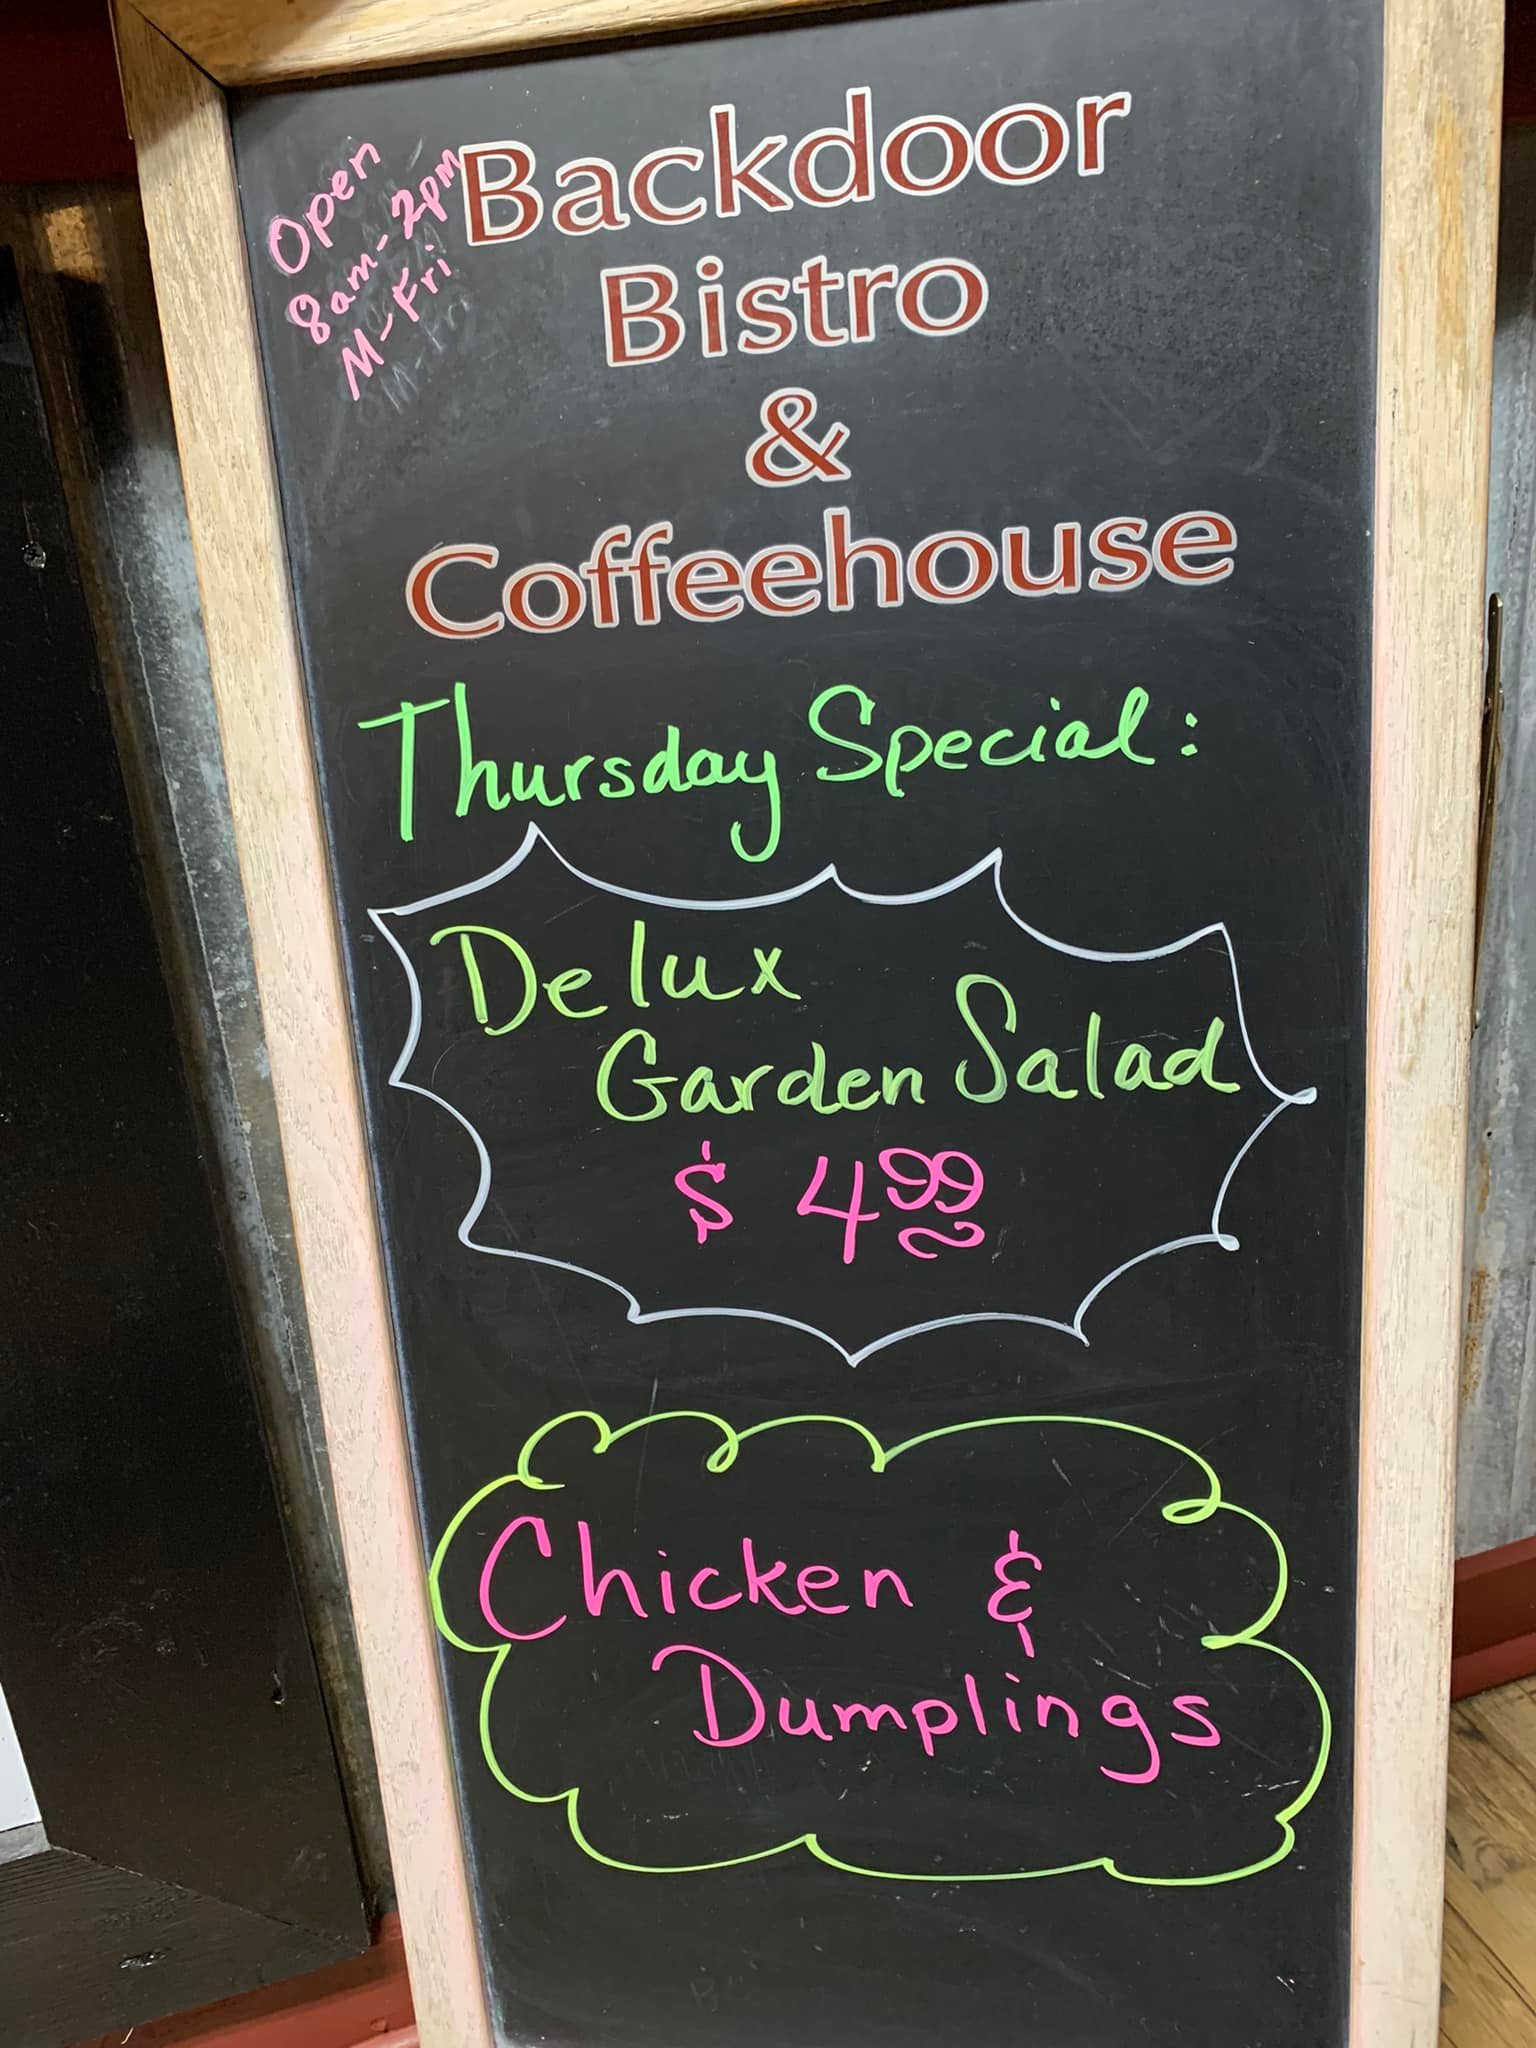 Open
8am-2pm
M-Fri
Backdoor
Bistro
&
Coffeehouse
Thursday Special:
Delux
Garden Salad
$ 4.99
Chicken &
Dumplings